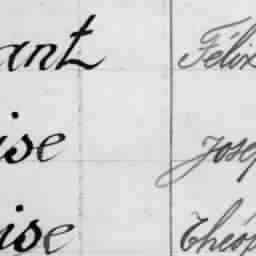 ant Félix
ise Josep
ise Théop